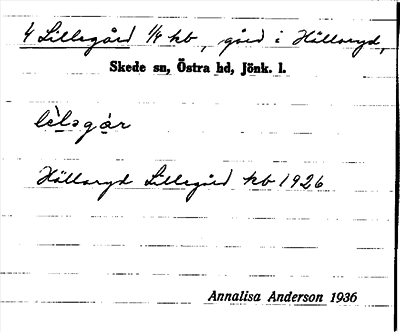 4 Lillegård 1/4 kb, gård i Hållaryd,
Skede sn, Östra hd, Jönk. l.
lèləgår
Hållaryd Lillegård kb 1926
Annalisa Anderson 1936